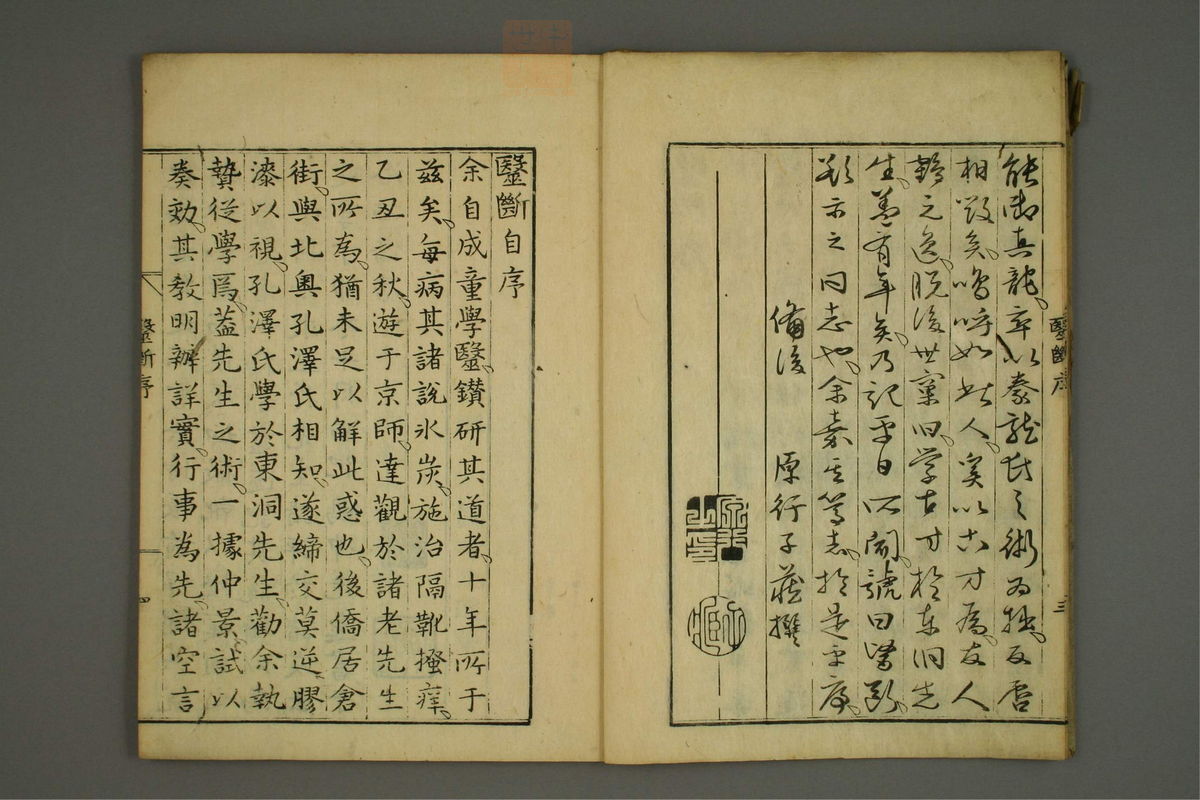 醫斷序
三
能御真龍、卒以豢龍氏之術為拙、反唇
相毀矣、嗚呼如此人、奚以古方為、友人
鶴元逸、脱後世窠臼、学古方於東洞先
生、蓋有年矣、乃記平日所聞、號曰醫斷、
欲示之同志也、余嘉其篤志、於是乎序、
備後 原行子藏撰
毉斷自序
余自成童學毉、鑚研其道者、十年所于
茲矣、每病其諸說氷炭、施治隔靴搔痒、
乙丑之秋、遊于京師、達觀於諸老先生
之所為、猶未足以解此惑也、後僑居倉
街、與北奧孔澤氏相知、遂締交莫逆膠
漆以視、孔澤氏學於東洞先生、勸余執
贄從學焉、蓋先生之術、一據仲景、試以
奏効、其敎明辨詳實、行事為先、諸空言
毉斷序
四